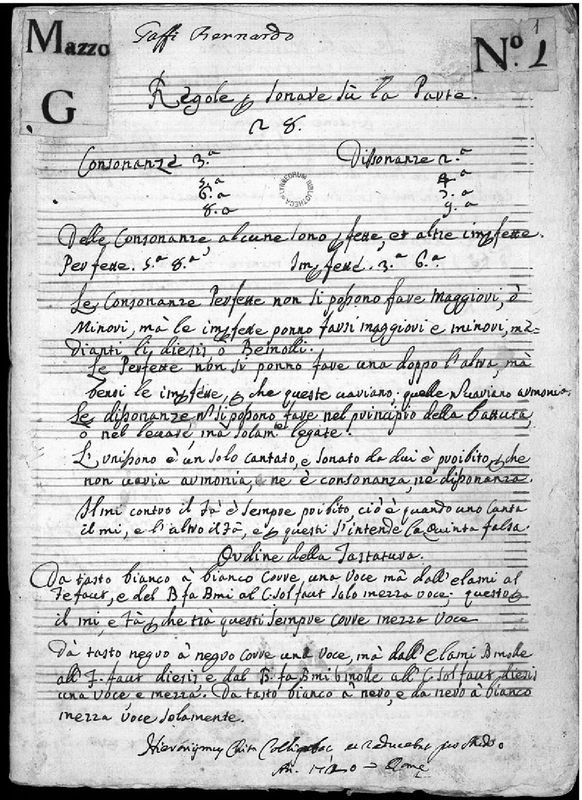 Mazzo
G
Gaffi Bernardo
N.º 1
1
Regole p sonare sù la Parte.
Consonanze 3.ª
5.ª
6.ª
8.ª
Dissonanze 2.ª
4.ª
7.ª
9.ª
Delle Consonanze, alcune sono pfette, et altre impfette.
Perfette. 5.ª 8.ª
Impfette. 3.ª 6.ª
Le Consonanze Perfette non si possono fare maggiori, ò
Minori, mà le impfette ponno farsi maggiori e minori, me=
dianti li diesis ò Bemolli.
Le Perfette non si ponno fare una doppo l'altra, mà
bensi le impfette, p che queste variano, quelle ñ variano armonia.
Le dissonanze, ñ si possono fare nel principio della battuta,
ò nel levare, mà solam.te legate.
L'unissono è un solo cantato, e sonato da dui è proibito, p che
non varia armonia, e ne è consonanza, ne dissonanza.
Il mi contro il Fà è sempre poibito, ciò è quando uno canta
il mi, e l'altro il Fà, e p questi s'intende la Quinta falsa.
Ordine della Tastatura.
Da tasto bianco à bianco corre una voce mà dall'elami al
Fefaut, e del B fa Bmi al C sol faut solo mezza voce; questo p
il mi, e Fà, p che trà questi sempre corre mezza voce
Dà tasto negro à negro corre una voce, mà dall'elami Bmolle
all'F. faut diesis e dal B. fa Bmi bmolle all C. sol faut diesis
una voce e mezza. Da tasto bianco à nero, e da nero à bianco
mezza voce solamente.
Hieronymus Chiti